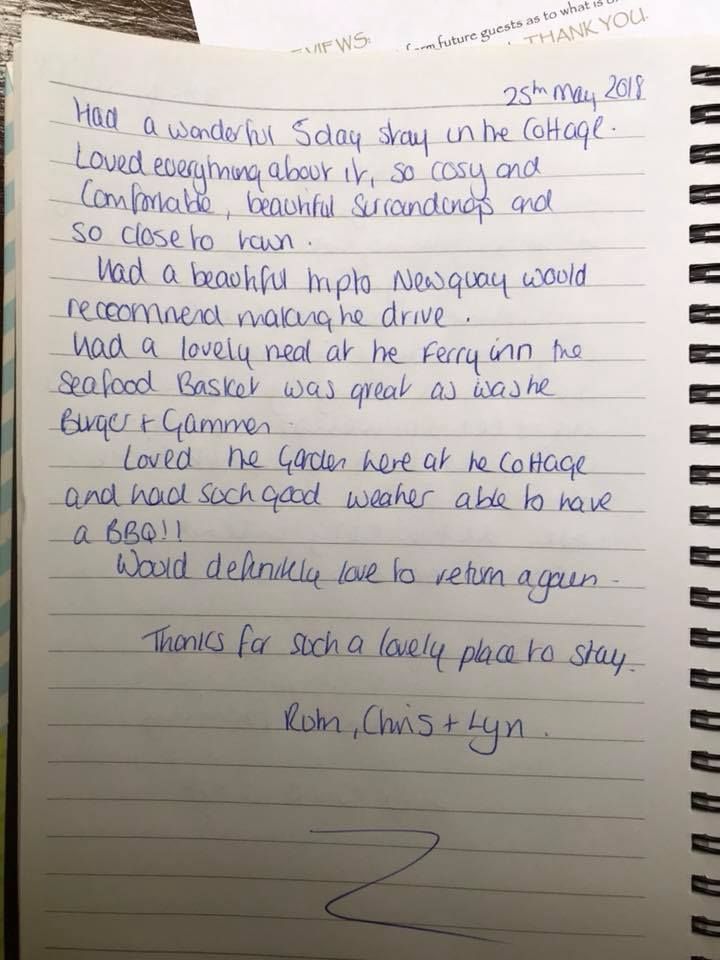 future guests as to what is
VIEWS:
THANK YOU.
25th May 2018
Had a wonderful 5day stay in the Cottage.
Loved everything about it, so cosy and
Comfortable, beautiful Surrandings and
so close to town.
Had a beautiful trip to Newquay would
reccomnend making the drive.
Had a lovely meal at the Ferry inn the
Seafood Basket was great as was the
Burger + Gammen
Loved the Garden here at the Cottage
and had such good weather able to have
a BBQ!!
Would definitely love to return again.
Thanks for such a lovely place to stay.
Chris + Lyn.